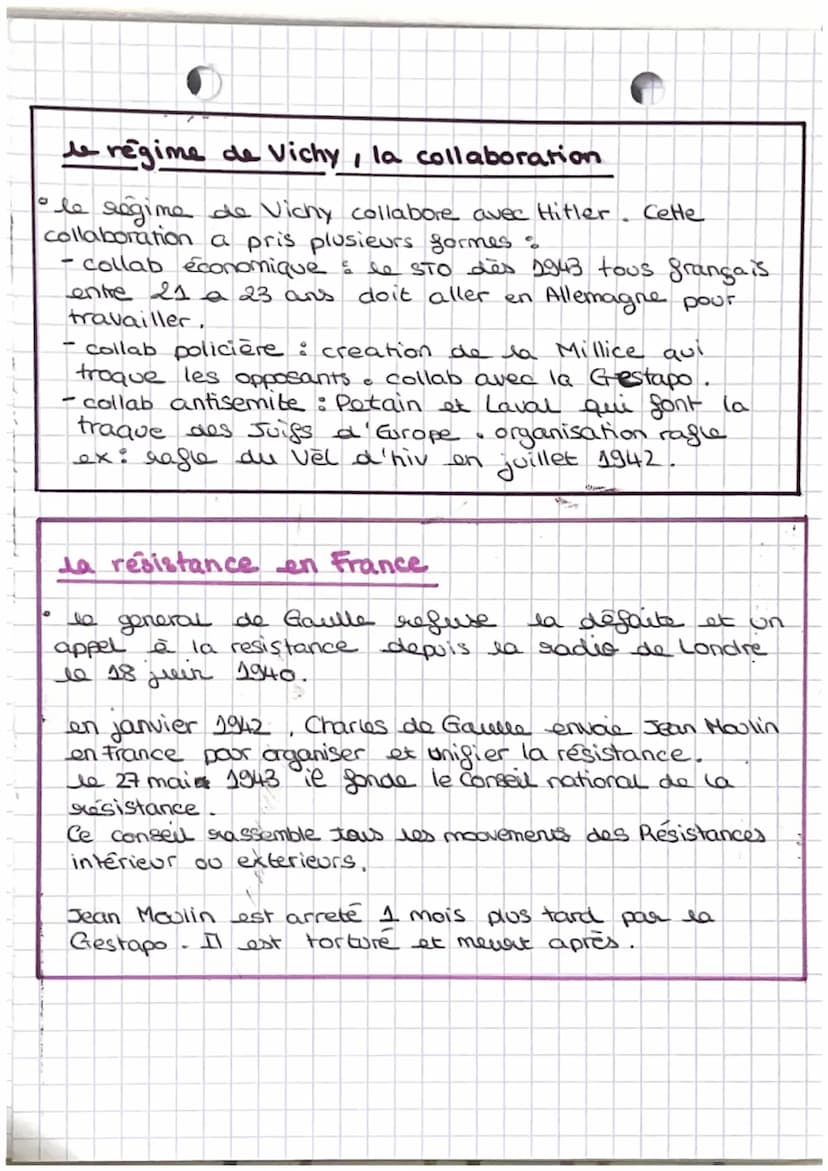 le régime de Vichy, la collaboration
• le régime de Vichy collabore avec Hitler. Cette
collaboration a pris plusieurs formes :
- collab économique : le STO dès 1943 tous français
entre 21 a 23 ans doit aller en Allemagne pour
travailler.
- collab policière : creation de la Millice qui
troque les opposants. collab avec la Gestapo.
- collab antisemite : Petain et Laval qui font la
traque des Juifs d'Europe. organisation rafle
ex : rafle du Vèl d'hiv en juillet 1942.
la résistance en France
• le general de Gaulle refuse la défaite et un
appel à la resistance depuis la radio de Londre
le 18 juin 1940.
en janvier 1942, Charles de Gaulle envoie Jean Moulin
en France pour organiser et unifier la résistance.
le 27 mai 1943 il fonde le Conseil national de la
résistance.
Ce conseil rassemble tous les mouvements des Résistances
intérieur ou exterieurs.
Jean Moulin est arreté 1 mois plus tard par la
Gestapo. Il est torturé et meurt après.